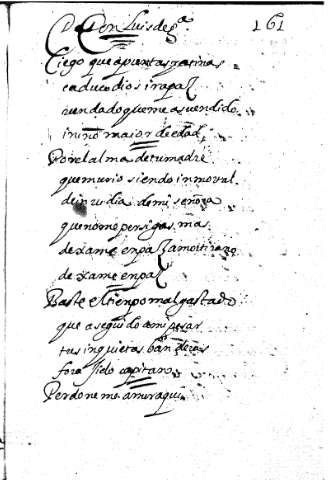 De Don Luis de g.ª 161
Ciego que apuntas y atinas
caduco dios i rapaz
vendado que me as vendido
i niño maior de edad
Por el alma de tu madre
que murio siendo inmortal
de inuidia de mi señora
que no me persigas mas
dexame en paz amor tirano
dexame en paz
Baste el tienpo mal gastado
que a seguido a mi pesar
tus inquietas banderas
foragido capitan
Perdoname amor aqui